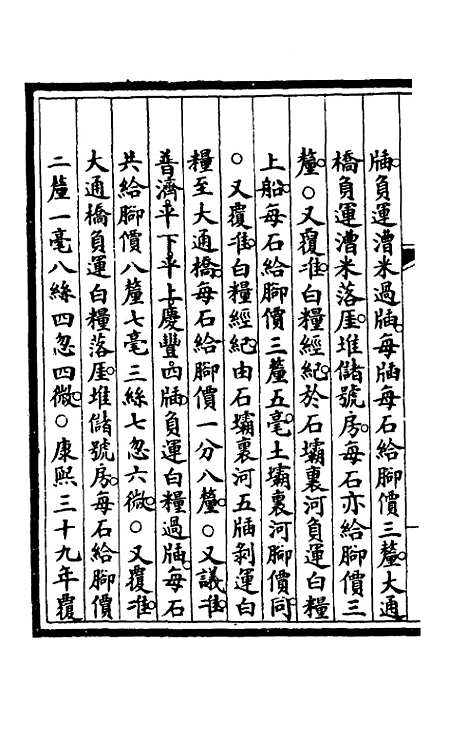 牐負運漕米過牐每牐每石給腳價三釐大通
橋負運漕米落厓堆儲號房每石亦給腳價三
釐○又覆准白糧經紀於石壩裏河負運白糧
上船每石給腳價三釐五毫土壩裏河腳價同
○又覆准白糧經紀由石壩裏河五牐剝運白
糧至大通橋每石給腳價一分八釐○又議准
普濟平下平上慶豐四牐負運白糧過牐每石
共給腳價八釐七毫三絲七忽六微○又覆准
大通橋負運白糧落厓堆儲號房每石給腳價
二釐一毫八絲四忽四微○康熙三十九年覆